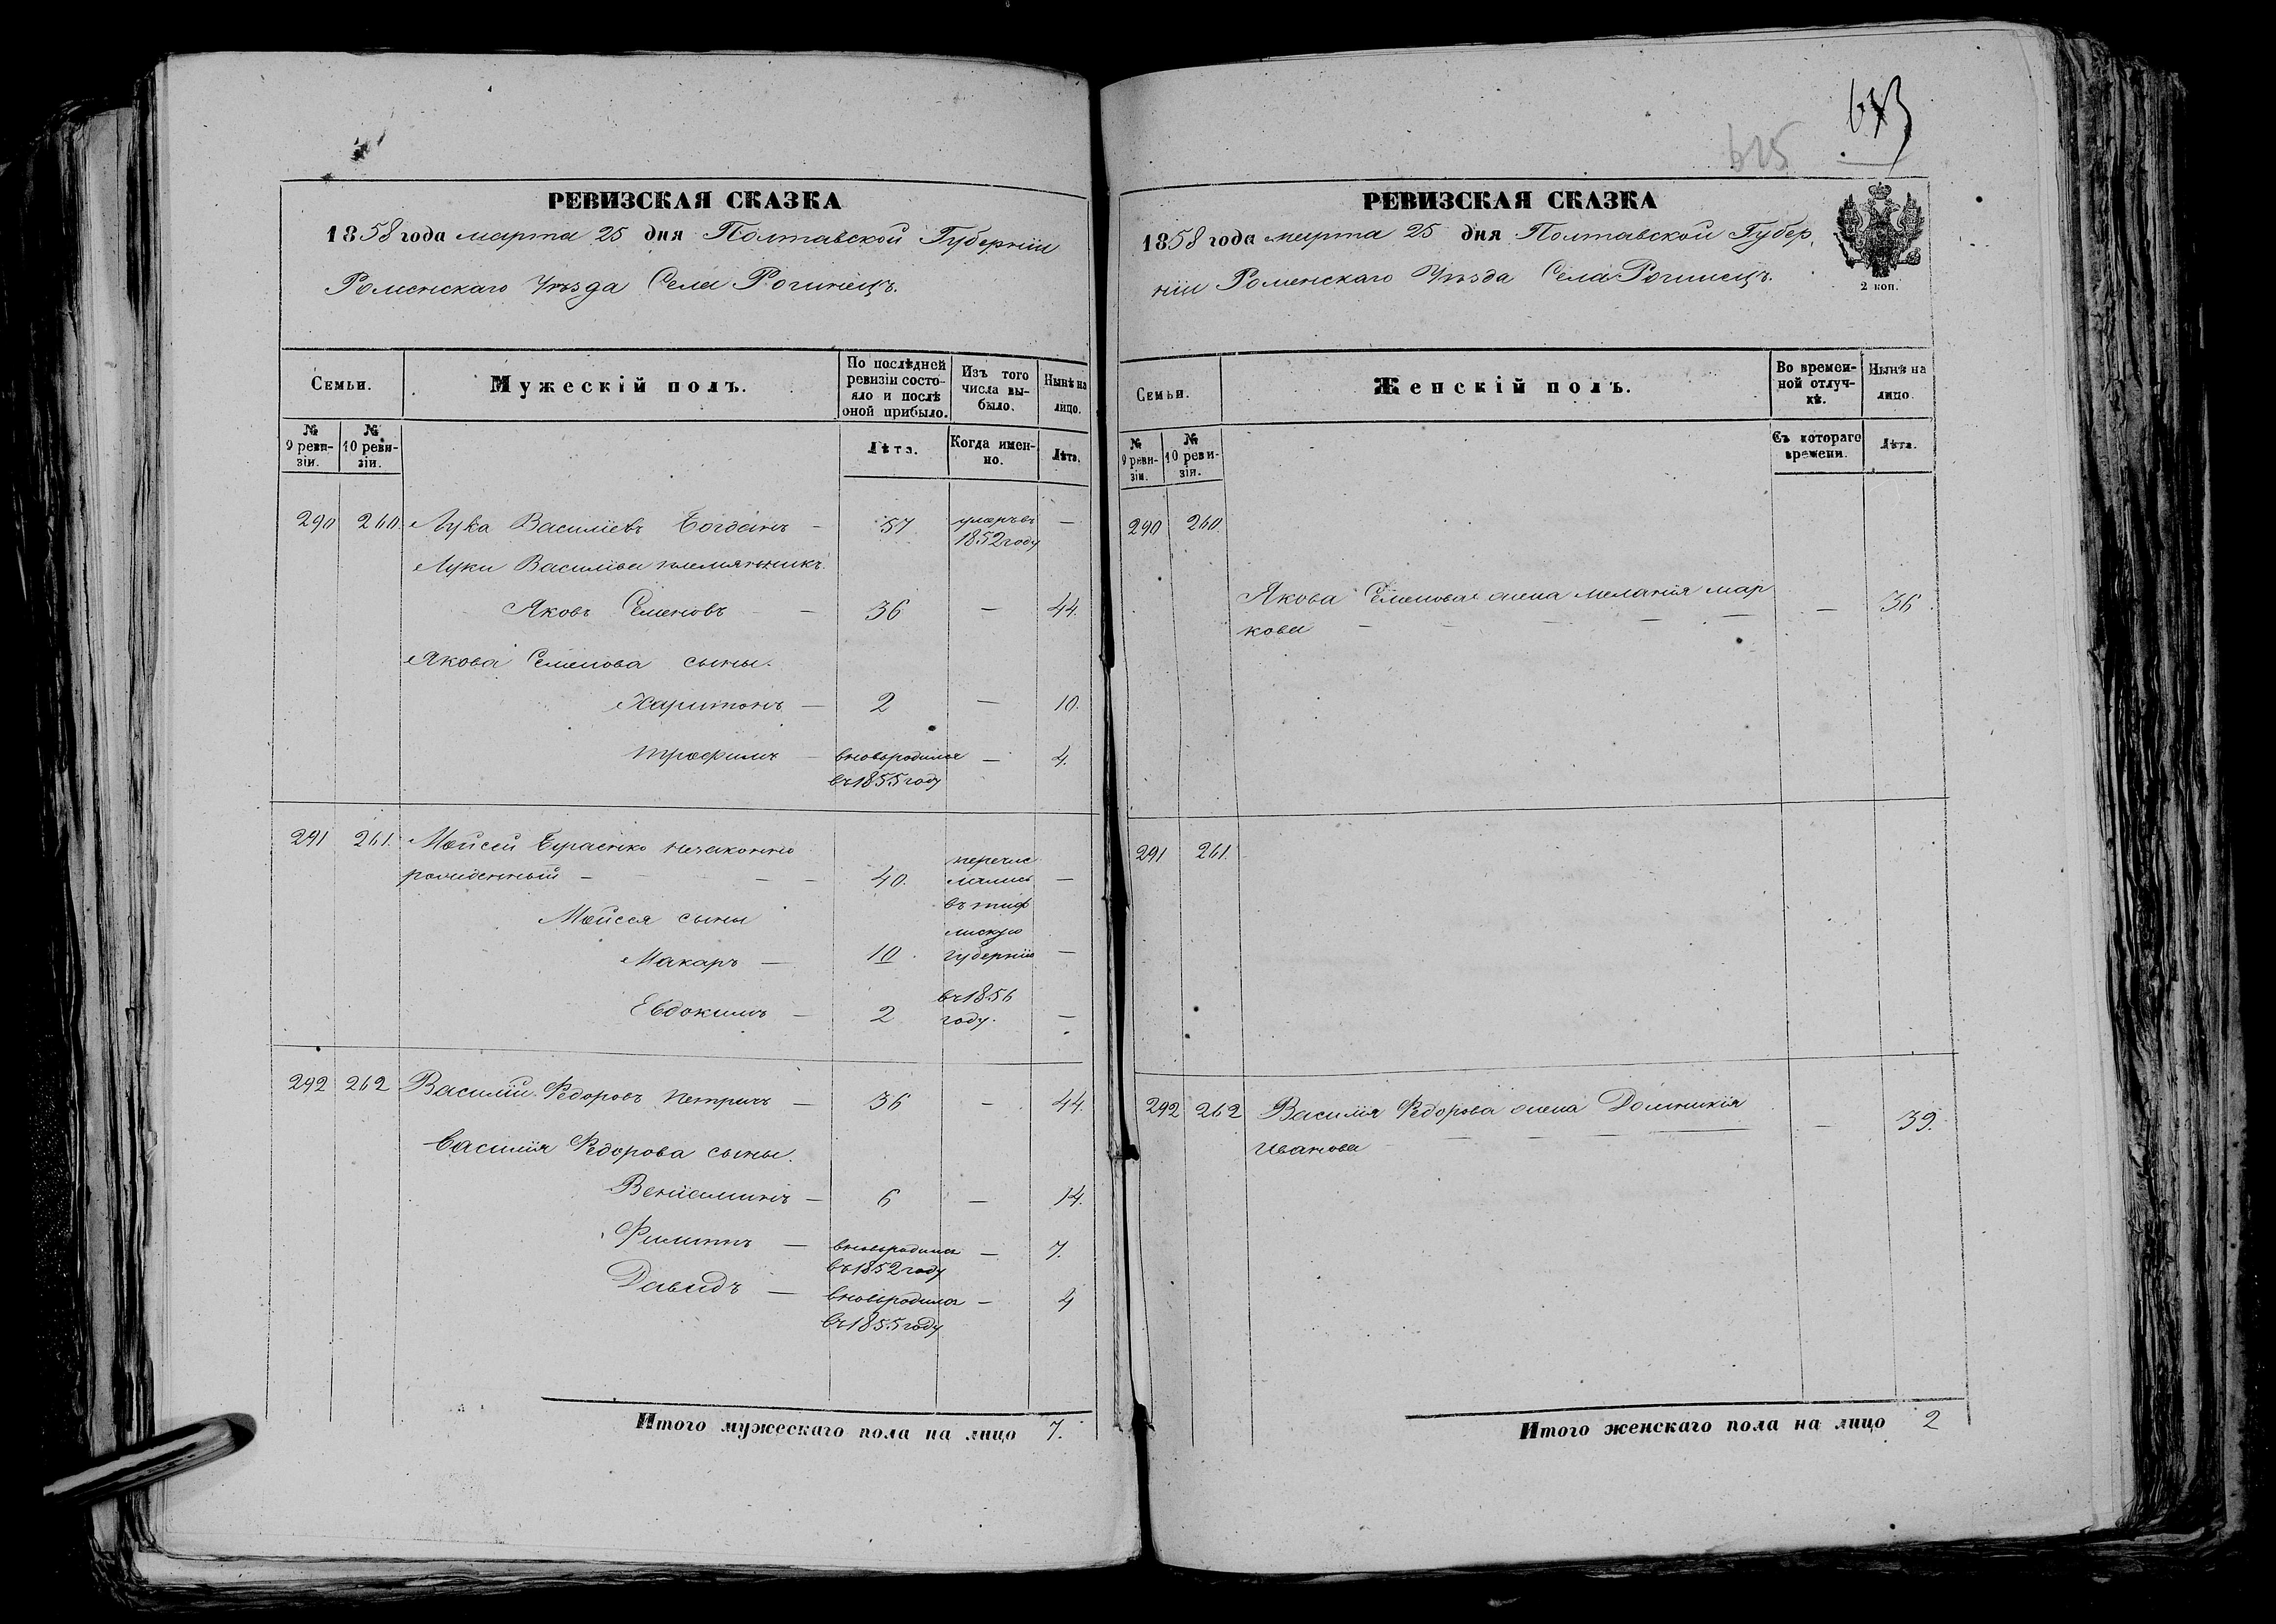 РЕВИЗСКАЯ СКАЗКА
1858 года марта 25 дня Полтавской Губерніи
Роменскаго Уѣзда Села Рогинецъ.
Семьи.
Мужескій полъ.
По послѣдней ревизіи состояло и послѣ оной прибыло.
Изъ того числа выбыло.
Нынѣ на лицо.
№ 9 ревизіи.
№ 10 ревизіи.
Лѣта.
Когда именно.
Лѣта.
290 260 Лука Васильевъ Богданъ — 57 умеръ въ 1852 году —
Луки Васильева племянникъ
Яковъ Семеновъ — 36 — 44.
Якова Семенова сыны.
Харитонъ — 2 — 10.
Трофимъ — вновьродился въ 1855 году — 4.
291 261. Мойсей незаконно
рожденный — — — 40. перечис
лились —
въ тиф
Мойсея сыны
лискую
Макаръ — 10. губернію —
Евдокимъ — 2 въ 1856 году. —
292 262 Василій Федоровъ Петрикъ — 36 — 44.
Василія Федорова сыны.
Веніаминъ — 6 — 14.
Филиппъ — вновьродился въ 1852 году — 7.
Давидъ — вновьродился въ 1855 году — 4
Итого мужескаго пола на лицо 7.
625
РЕВИЗСКАЯ СКАЗКА
1858 года марта 25 дня Полтавской Губер
ніи Роменскаго Уѣзда Села Рогинецъ.
2 коп.
Семьи.
Женскій полъ.
Во временной отлучкѣ.
Нынѣ на лицо.
№ 9 ревизіи.
№ 10 ревизіи.
Съ котораго времени.
Лѣта.
290 260.
Якова Семенова жена Меланія Мар
кова — — — — — — 36.
291 261.
292 262 Василія Федорова жена Домникія
Иванова — — — — — 39.
Итого женскаго пола на лицо 2